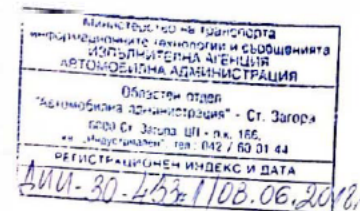 Министерство на транспорта
информационните технологии и съобщенията
ИЗПЪЛНИТЕЛНА АГЕНЦИЯ
АВТОМОБИЛНА АДМИНИСТРАЦИЯ
Областен отдел
"Автомобилна администрация" - Ст. Загора
6000 Ст. Загора, ЦП - п.к. 166,
кв. "Индустриален" тел.: 042 / 60 01 44
РЕГИСТРАЦИОНЕН ИНДЕКС И ДАТА
ДИИ-30-453-1/08.06.2018г.